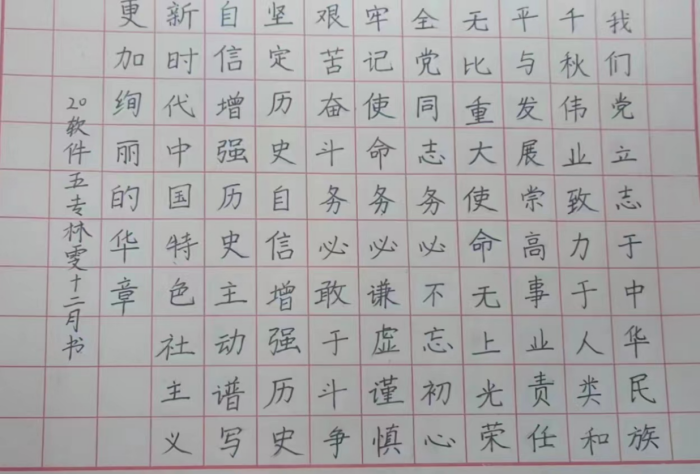 我们党立志于中华民族
千秋伟业致力于人类和
平与发展崇高事业责任
无比重大使命无上光荣
全党同志务必不忘初心
牢记使命务必谦虚谨慎
艰苦奋斗务必敢于斗争
坚定历史自信增强历史
自信增强历史主动谱写
新时代中国特色社主义
更加绚丽的华章
20软件五专林雯十二月书